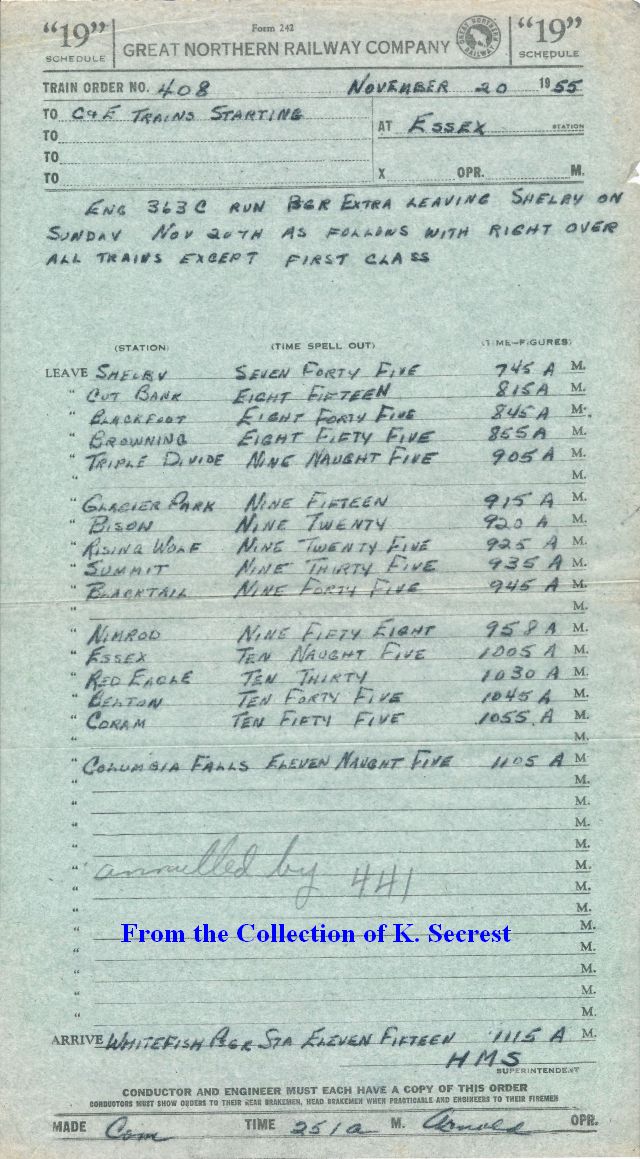 "19" Form 242 "19"
SCHEDULE GREAT NORTHERN RAILWAY COMPANY GREAT NORTHERN RAILWAY SCHEDULE
TRAIN ORDER NO. 408 NOVEMBER 20 1955
TO C&E TRAINS STARTING AT ESSEX STATION
TO
TO
TO X OPR. M.
ENG 363C RUN PSGR EXTRA LEAVING SHELBY ON
SUNDAY NOV 20TH AS FOLLOWS WITH RIGHT OVER
ALL TRAINS EXCEPT FIRST CLASS
(STATION) (TIME SPELL OUT) (TIME-FIGURES)
LEAVE SHELBY SEVEN FORTY FIVE 745 A M.
" CUT BANK EIGHT FIFTEEN 815 A M.
" BLACKFOOT EIGHT FORTY FIVE 845 A M.
" BROWNING EIGHT FIFTY FIVE 855 A M.
" TRIPLE DIVIDE NINE NAUGHT FIVE 905 A M.
" M.
" GLACIER PARK NINE FIFTEEN 915 A M.
" BISON NINE TWENTY 920 A M.
" RISING WOLF NINE TWENTY FIVE 925 A M.
" SUMMIT NINE THIRTY FIVE 935 A M.
" BLACKTAIL NINE FORTY FIVE 945 A M.
" M.
" NIMROD NINE FIFTY EIGHT 958 A M.
" ESSEX TEN NAUGHT FIVE 1005 A M.
" RED EAGLE TEN THIRTY 1030 A M.
" BELTON TEN FORTY FIVE 1045 A M.
" CORAM TEN FIFTY FIVE 1055 A M.
" M.
" COLUMBIA FALLS ELEVEN NAUGHT FIVE 1105 A M
" M.
" M.
" M.
" M.
" annulled by 441 M.
" M.
" M.
" From the Collection of K. Secrest M.
" M.
" M.
" M.
" M.
ARRIVE WHITEFISH PSGR STA ELEVEN FIFTEEN 1115 A M.
HMS
SUPERINTENDENT
CONDUCTOR AND ENGINEER MUST EACH HAVE A COPY OF THIS ORDER
CONDUCTORS MUST SHOW ORDERS TO THEIR REAR BRAKEMEN, HEAD BRAKEMEN WHEN PRACTICABLE AND ENGINEERS TO THEIR FIREMEN
MADE Com TIME 251a M. Arnold OPR.